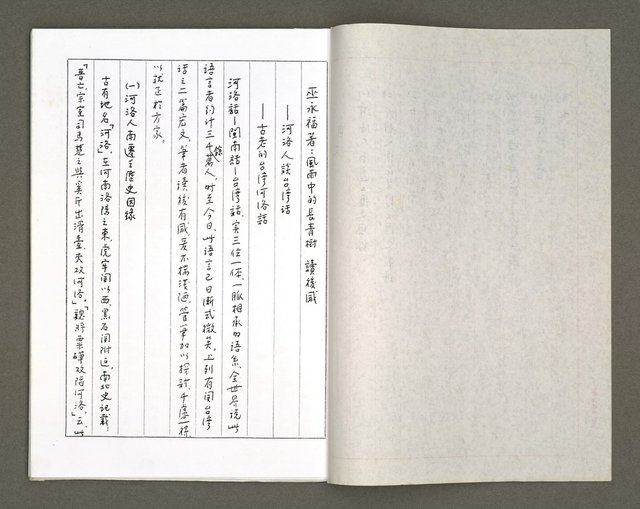 巫永福著：風雨中的長青樹 讀後感
──河洛人談台湾話
──古老的台湾河洛話
河洛話─閩南話─台湾話，实三位一体，一脈相承的语系，全世界说此
语言者约计三千餘萬人，时至今日，此语言已日漸式微矣。上列有関台湾
话之二篇宏文，筆者讀後有感，爰不揣淺陋，管筆加以探討，千慮一得
以就正於方家。
(一)河洛人南遷之歷史因緣
古有地名「河洛」在河南洛陽之東，虎牢関以西，黑石関附近，南北史记载：
「晋亡，宗室司馬楚之與奚斤出滑臺，夹攻河洛」。「魏將栗磾攻陷河洛」云，此